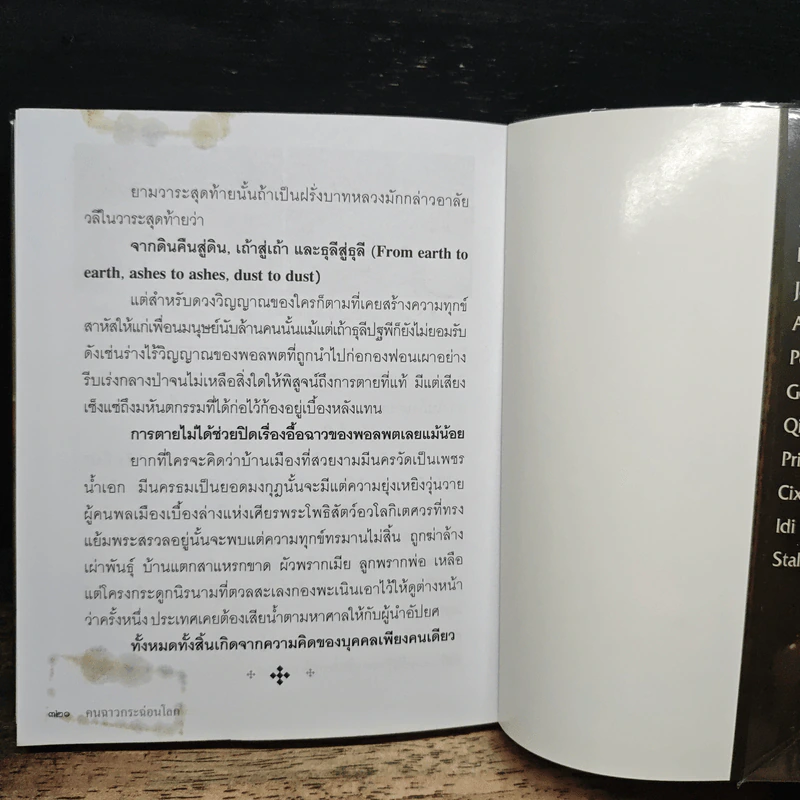 ยามวาระสุดท้ายนั้นถ้าเป็นฝรั่งบาทหลวงมักกล่าวอาลัย
วลีในวาระสุดท้ายว่า
จากดินคืนสู่ดิน, เถ้าสู่เถ้า และธุลีสู่ธุลี (From earth to
earth, ashes to ashes, dust to dust)
แต่สำหรับดวงวิญญาณของใครก็ตามที่เคยสร้างความทุกข์
สาหัสให้แก่เพื่อนมนุษย์นับล้านคนนั้นแม้แต่เถ้าธุลีปฐพีก็ยังไม่ยอมรับ
ดังเช่นร่างไร้วิญญาณของพอลพตที่ถูกนำไปก่อกองฟอนเผาอย่าง
รีบเร่งกลางป่าจนไม่เหลือสิ่งใดให้พิสูจน์ถึงการตายที่แท้ มีแต่เสียง
เซ็งแซ่ถึงมหันตกรรมที่ได้ก่อไว้ก้องอยู่เบื้องหลังแทน
การตายไม่ได้ช่วยปิดเรื่องอื้อฉาวของพอลพตเลยแม้น้อย
ยากที่ใครจะคิดว่าบ้านเมืองที่สวยงามมีนครวัดเป็นเพชร
น้ำเอก มีนครธมเป็นยอดมงกุฎนั้นจะมีแต่ความยุ่งเหยิงวุ่นวาย
ผู้คนพลเมืองเบื้องล่างแห่งเศียรพระโพธิสัตว์อวโลกิเตศวรที่ทรง
แย้มพระสรวลอยู่นั้นจะพบแต่ความทุกข์ทรมานไม่สิ้น ถูกฆ่าล้าง
เผ่าพันธุ์ บ้านแตกสาแหรกขาด ผัวพรากเมีย ลูกพรากพ่อ เหลือ
แต่โครงกระดูกนิรนามที่ตวลสะเลงกองพะเนินเอาไว้ให้ดูต่างหน้า
ว่าครั้งหนึ่ง ประเทศเคยต้องเสียน้ำตามหาศาลให้กับผู้นำอัปยศ
ทั้งหมดทั้งสิ้นเกิดจากความคิดของบุคคลเพียงคนเดียว
๓๒๑ คนฉาวกระฉ่อนโลก
J
A
P
G
Qi
Pri
Cix
Idi
Stal